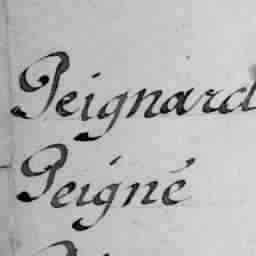 Peignard
Peigné